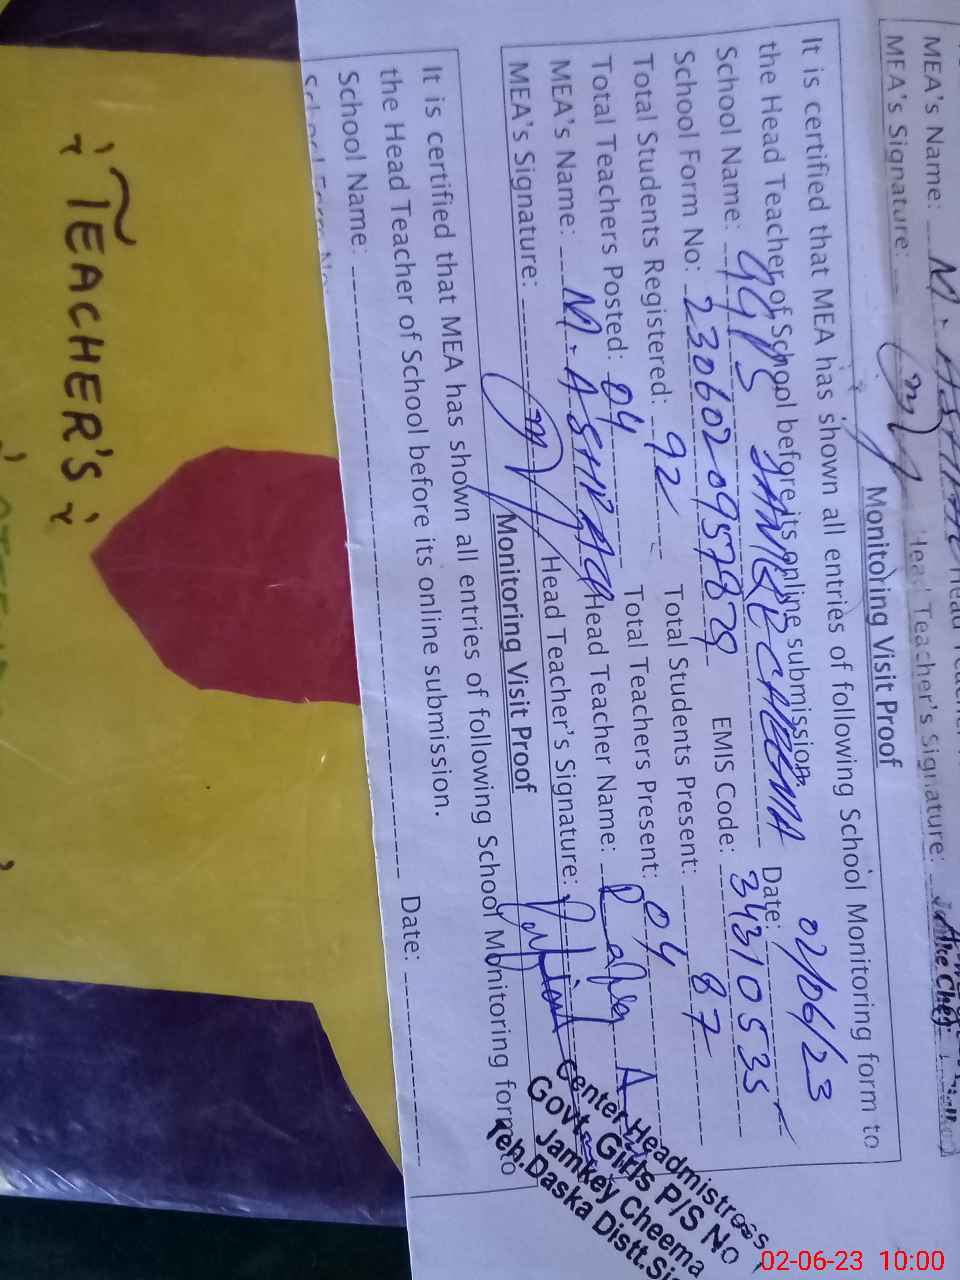 MEA's Name: M. ASHRAF Head Teacher
MEA's Signature: Head Teacher's Signature:
Monitoring Visit Proof
It is certified that MEA has shown all entries of following School Monitoring form to
the Head Teacher of School before its online submission.
School Name: GGPS JAMKE CHEEMA Date: 02/06/23
School Form No: EMIS Code: 34310535
Total Students Registered: 92 Total Students Present: 87
Total Teachers Posted: 04 Total Teachers Present: 04
MEA's Name: M. ASHRAF Head Teacher Name:
MEA's Signature: Head Teacher's Signature:
Center Headmistress
Govt. Girls P/S No
Jamkey Cheema
Teh. Daska Distt.
Monitoring Visit Proof
It is certified that MEA has shown all entries of following School Monitoring form to
the Head Teacher of School before its online submission.
School Name: Date:
School Form No:
TEACHER'S
02-06-23 10:00